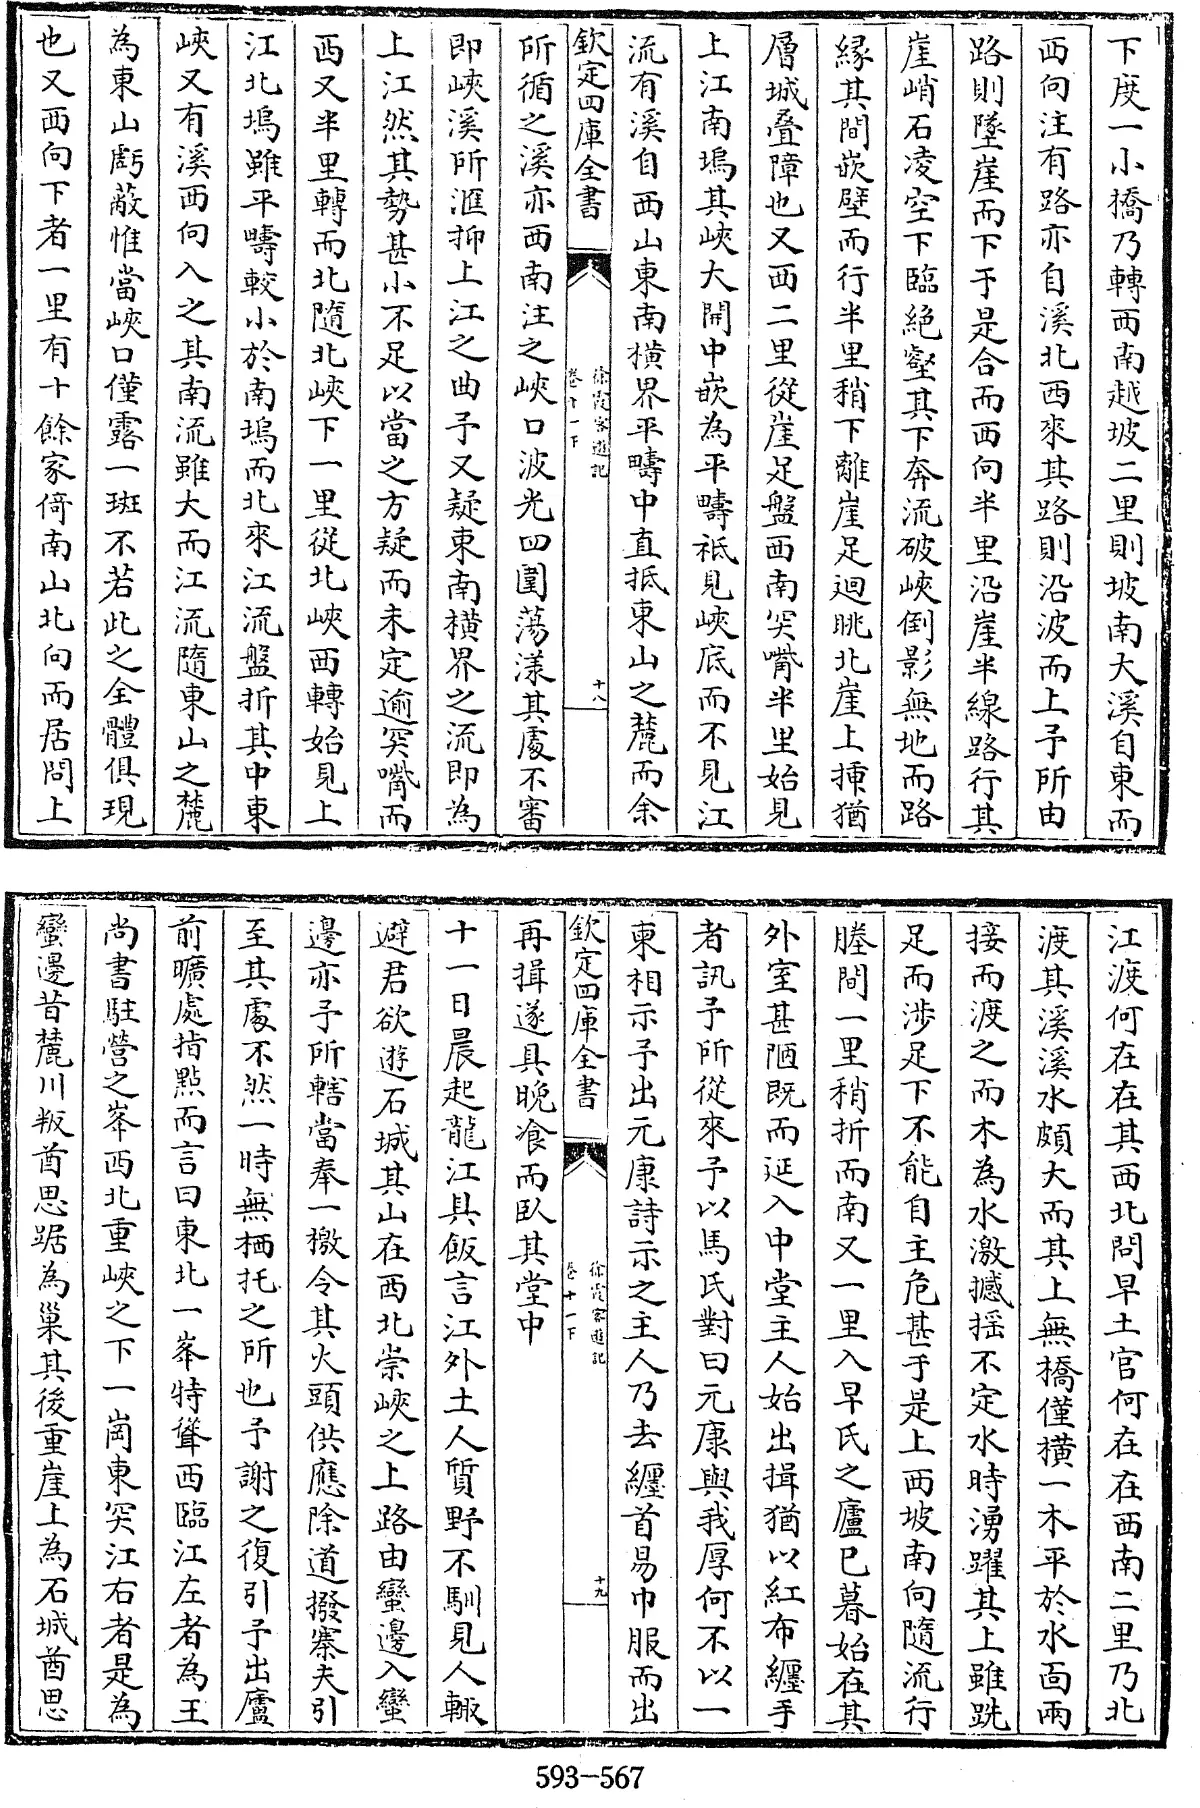 下度一小橋乃轉西南越坡二里則坡南大溪自東而
西向注有路亦自溪北西來其路則沿波而上予所由
路則墜崖而下于是合而西向半里沿崖半線路行其
崖峭石凌空下臨絶壑其下奔流破峽倒影無地而路
緣其間嵌壁而行半里稍下離崖足迴眺北崖上揷猶
層城叠障也又西二里從崖足盤西南突嘴半里始見
上江南塢其峽大開中嵌為平疇祗見峽底而不見江
流有溪自西山東南橫界平疇中直抵東山之麓而余
欽定四庫全書
徐霞客遊記
卷十一下
十八
所循之溪亦西南注之峽口波光四圍蕩漾其處不審
即峽溪所滙抑上江之曲予又疑東南橫界之流即為
上江然其勢甚小不足以當之方疑而未定逾突嘴而
西又半里轉而北隨北峽下一里從北峽西轉始見上
江北塢雖平疇較小於南塢而北來江流盤折其中東
峽又有溪西向入之其南流雖大而江流隨東山之麓
為東山虧蔽惟當峽口僅露一班不若此之全體俱現
也又西向下者一里有十餘家倚南山北向而居問上
江渡何在在其西北問早土官何在在西南二里乃北
渡其溪溪水頗大而其上無橋僅橫一木平於水面兩
接而渡之而木為水激撼揺不定水時湧躍其上雖跣
足而渉足下不能自主危甚于是上西坡南向隨流行
塍間一里稍折而南又一里入早氏之廬已暮始在其
外室甚陋既而延入中堂主人始出揖猶以紅布纏手
者訊予所從來予以馬氏對曰元康與我厚何不以一
柬相示予出元康詩示之主人乃去纏首易巾服而出
欽定四庫全書
徐霞客遊記
卷十一下
十九
再揖遂具晚飡而臥其堂中
十一日晨起龍江具飯言江外土人質野不馴見人輙
避君欲遊石城其山在西北崇峽之上路由蠻邊入蠻
邊亦予所轄當奉一檄令其火頭供應除道撥寨夫引
至其處不然一時無栖托之所也予謝之復引予出廬
前曠處指點而言曰東北一峯特聳西臨江左者為王
尚書駐營之峯西北重峽之下一崗東突江右者是為
蠻邊昔麓川叛酋思踞為巢其後重崖上為石城酋思
593-567